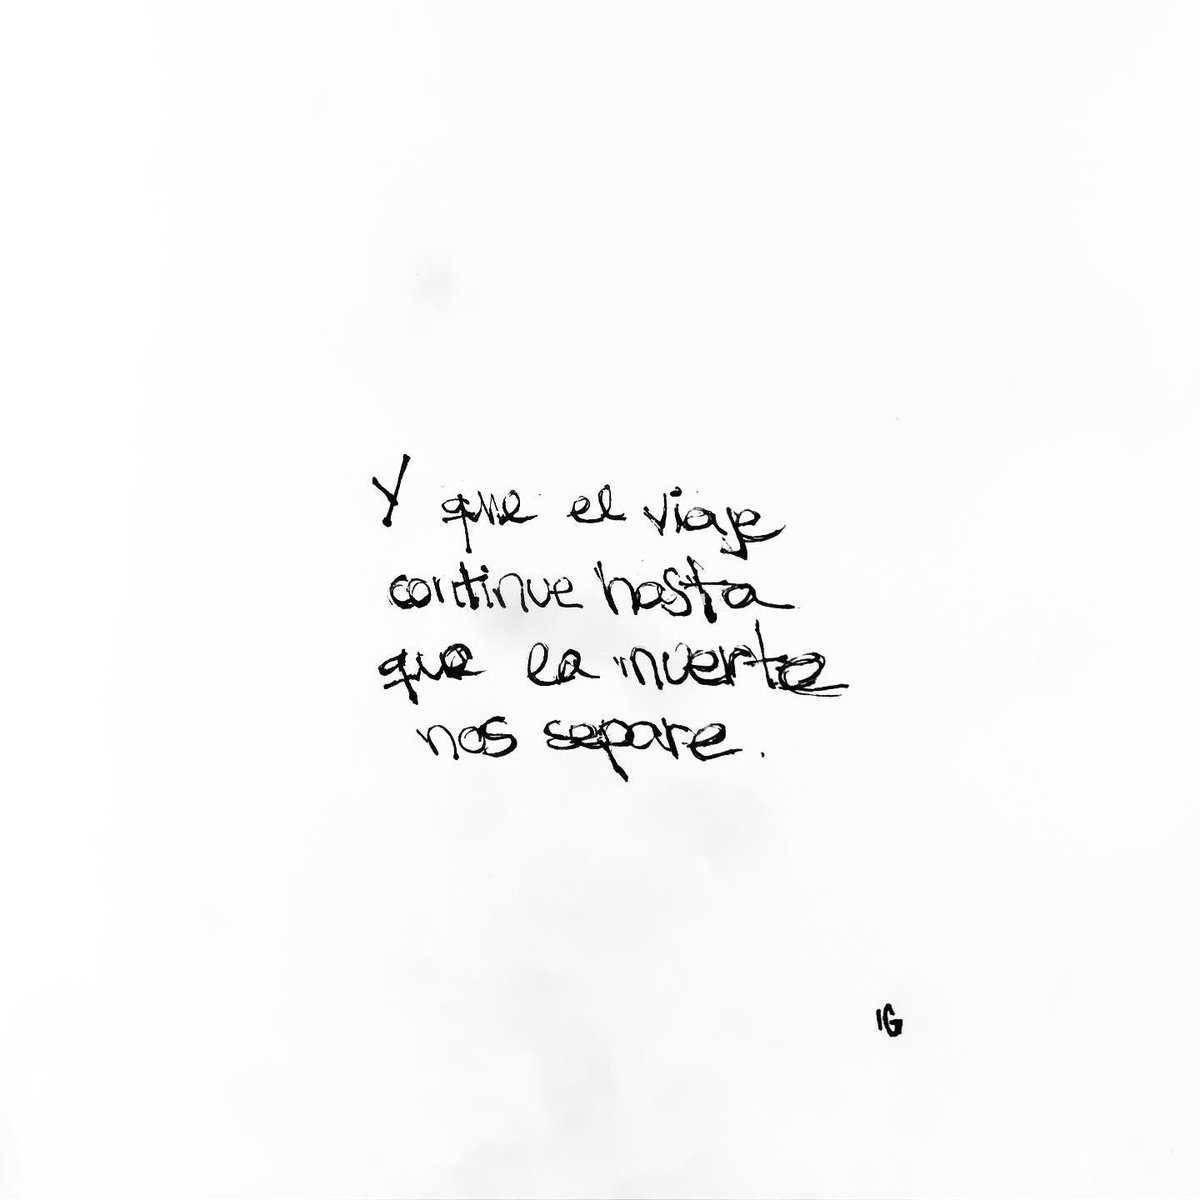 Y que el viaje
continue hasta
que la muerte
nos separe.
IG